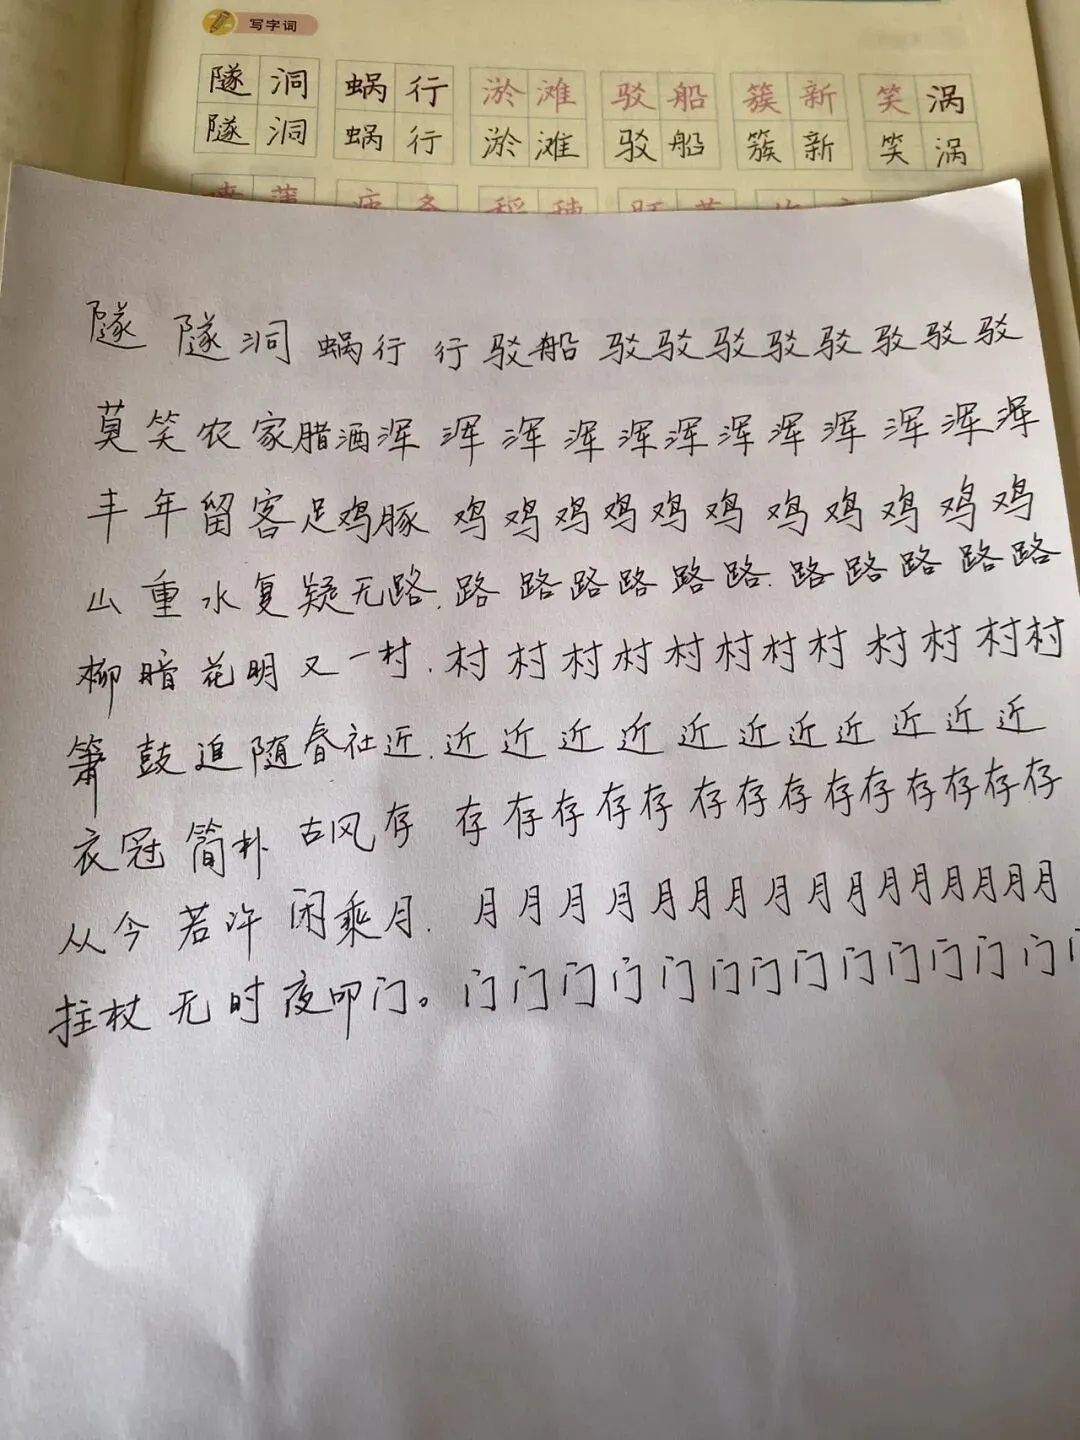 写字词
隧洞 蜗行 淤滩 驳船 簇新 笑涡
隧洞 蜗行 淤滩 驳船 簇新 笑涡
隧 隧洞 蜗行 行驳船 驳驳驳驳驳驳驳驳
莫笑农家腊酒浑 浑浑浑浑浑浑浑浑浑浑浑
丰年留客足鸡豚 鸡鸡鸡鸡鸡鸡鸡鸡鸡鸡鸡
山重水复疑无路.路路路路路路.路路路路路
柳暗花明又一村.村村村村村村村村村村村村
箫鼓追随春社近.近近近近近近近近近近近
衣冠简朴古风存 存存存存存存存存存存存存存存
从今若许闲乘月.月月月月月月月月月月月月月月月月
拄杖无时夜叩门。门门门门门门门门门门门门门